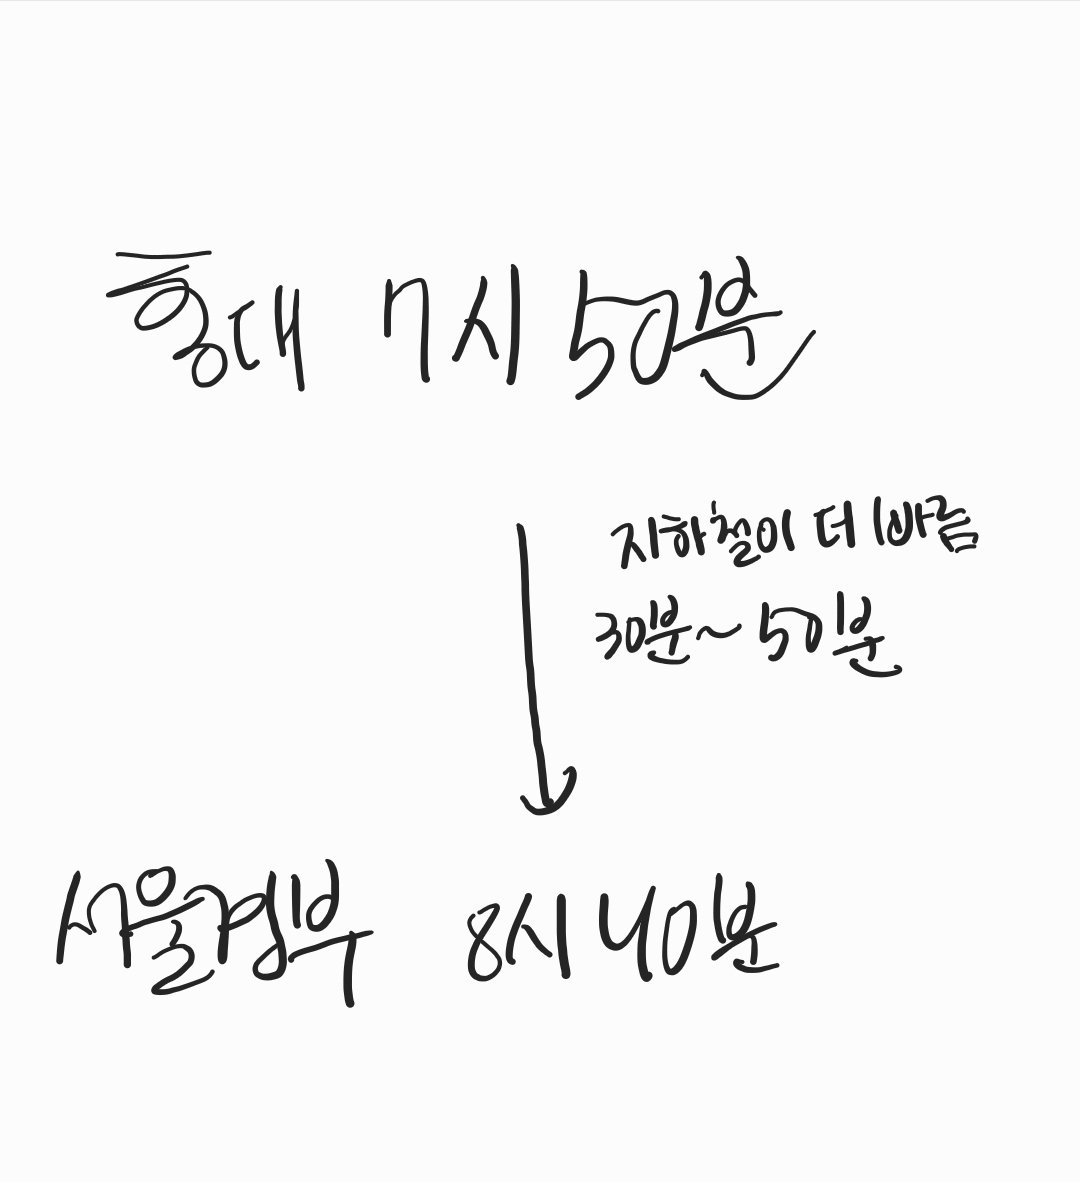 홍대 7시 50분
지하철이 더 빠름
30분~50분
서울경부 8시 40분